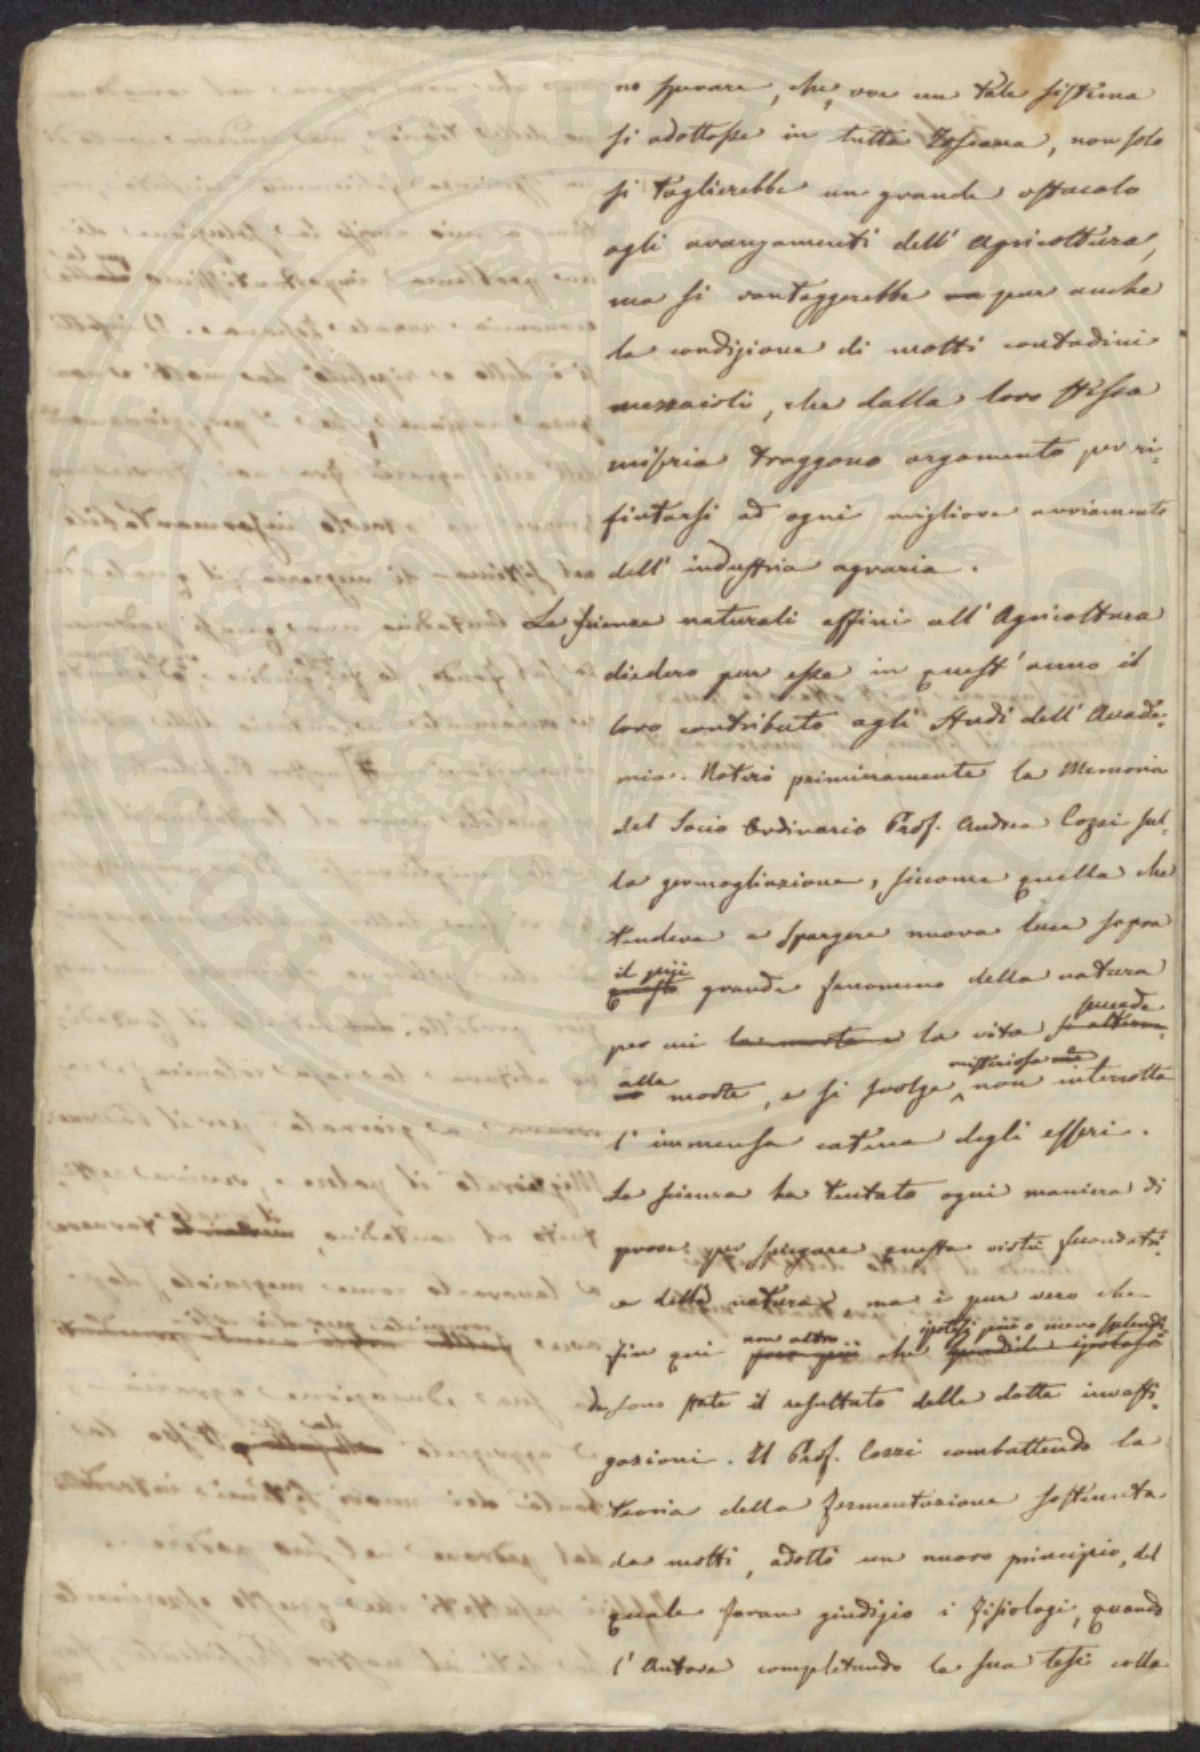 no sperare, che, ove un tale sistema
si adottasse in tutta Toscana, non solo
si toglierebbe un grande ostacolo
agli avanzamenti dell' Agricoltura,
ma si vantaggerebbe pur anche
la condizione di molti contadini
mezzaioli, che dalla loro stessa
miseria traggono argomento per ri-
fiutarsi ad ogni migliore avviamento
dell' industria agraria.
Le scienze naturali affini all' Agricoltura
diedero pur esse in quest' anno il
loro contributo agli studi dell' Accade-
mia. Noterò primieramente la Memoria
del Socio Ordinario Prof. Andrea Cozzi sul-
la germogliazione, siccome quella che
tendeva a spargere nuova luce sopra
il più
questo grande fenomeno della natura
succede
per cui la morte e la vita si alterna
alla misteriosa e
morte, e si svolge non interrotta
l' immensa catena degli esseri.
La scienza ha tentato ogni maniera di
prove per spiegare questa virtù fecondatri-
ce della natura, ma è pur vero che
non altro ipotesi più o meno splendi-
fin qui che ipotesi
de sono state il resultato delle dotte investi-
gazioni. Il Prof. Cozzi combattendo la
teoria della fermentazione sostenuta
da molti, adottò un nuovo principio, del
quale faran giudizio i Fisiologi, quando
l' Autore completando la sua tesi colla